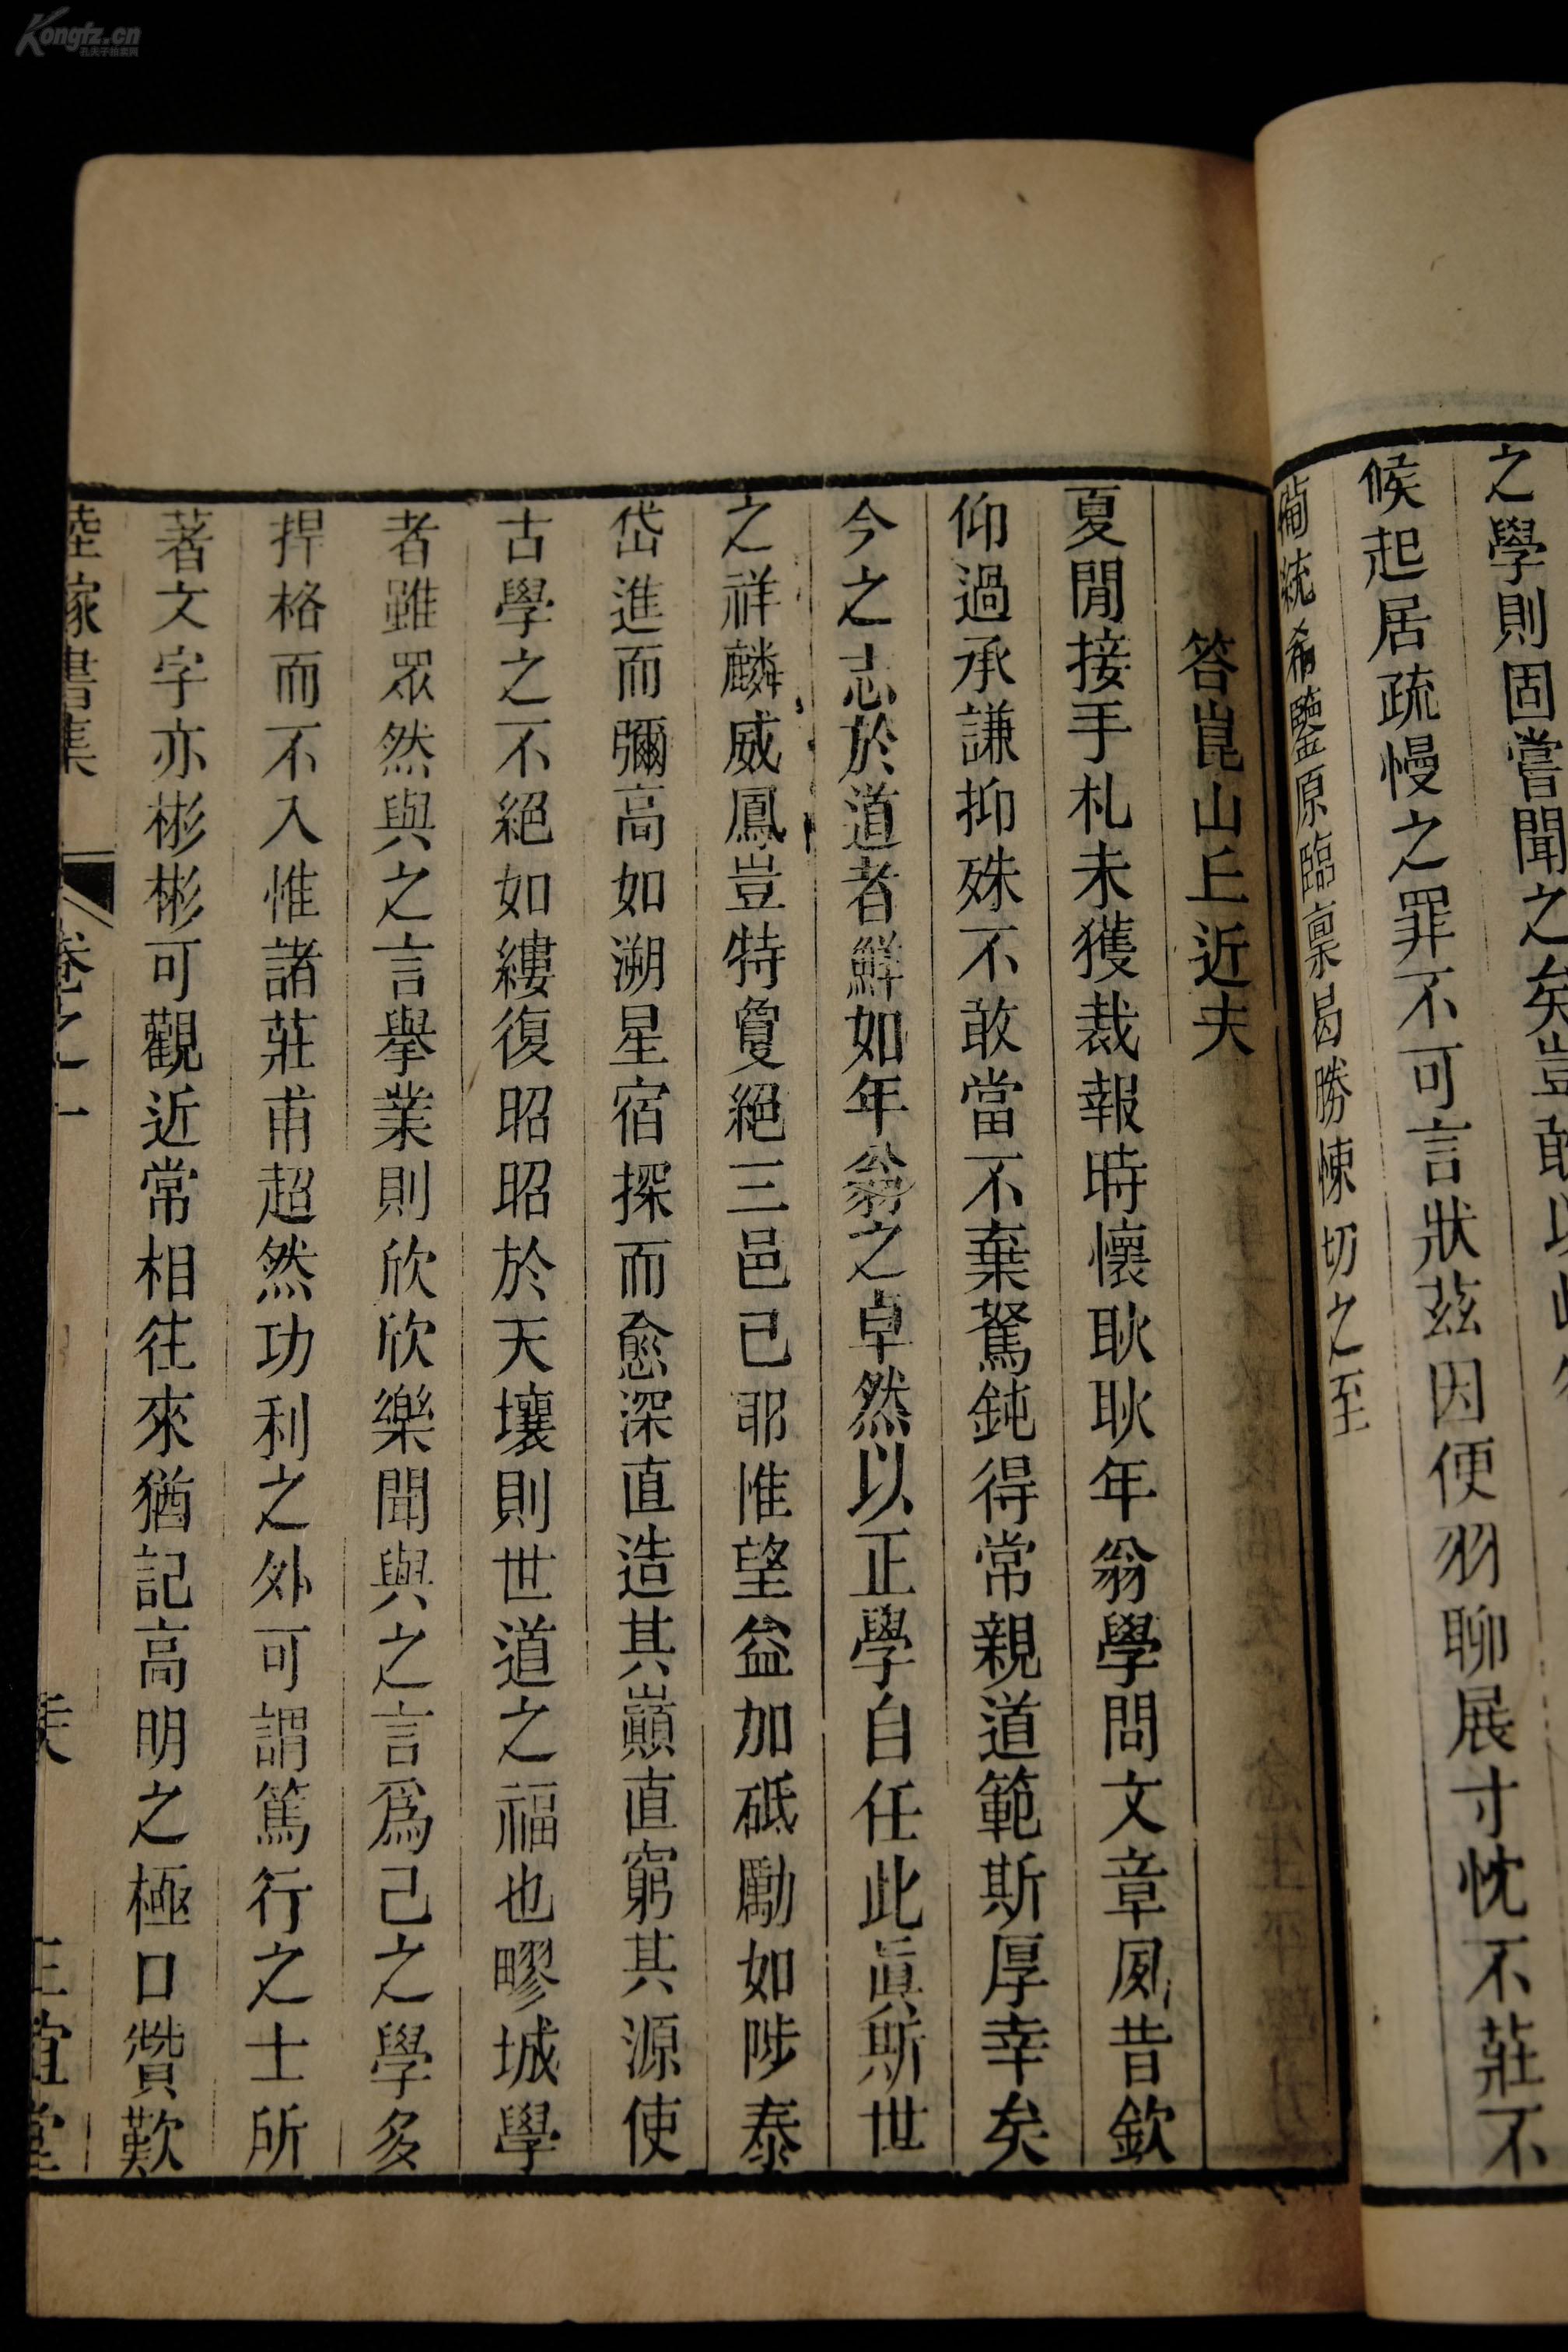 Kongfz.cn
孔夫子旧书网
之學則固嘗聞之矣豈敢以
候起居疏慢之罪不可言狀茲因便羽聊展寸忱不莊不
備統希鑒原臨稟曷勝悚切之至
答崑山丘近夫
夏間接手札未獲裁報時懷耿耿年翁學問文章夙昔欽
仰過承謙抑殊不敢當不棄駑鈍得常親道範斯厚幸矣
今之志於道者鮮如年翁之卓然以正學自任此眞斯世
之祥麟威鳳豈特夐絕三邑已耶惟望益加砥勵如陟泰
岱進而彌高如溯星宿探而愈深直造其巔直窮其源使
古學之不絕如縷復昭昭於天壤則世道之福也疁城學
者雖眾然與之言舉業則欣欣樂聞與之言爲己之學多
捍格而不入惟諸莊甫超然功利之外可謂篤行之士所
著文字亦彬彬可觀近常相往來猶記高明之極口贊歎
陸稼書集 卷之一 正誼堂